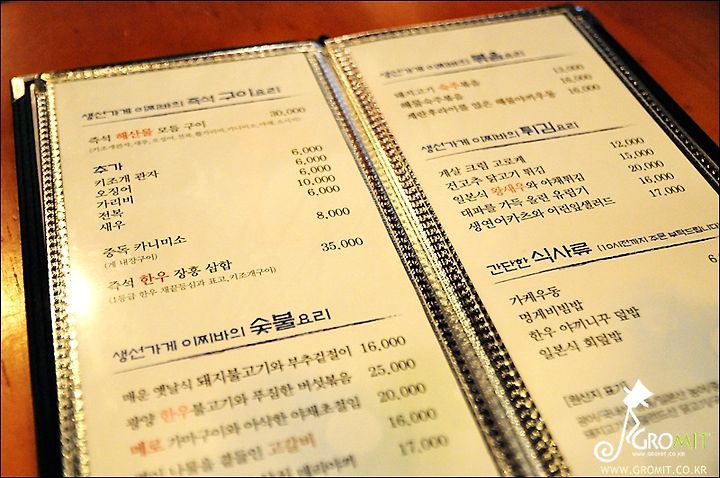 생선가게 이찌바의 즉석 구이요리
즉석 해산물 모듬 구이 30,000
추가
키조개 관자 6,000
오징어 6,000
가리비 6,000
전복 10,000
새우 6,000
중독 카니미소 8,000
(게 내장구이)
즉석 한우 장흥 삼합 35,000
(1등급 한우 채끝등심과 표고, 키조개구이)
생선가게 이찌바의 숯불요리
매운 옛날식 돼지불고기와 부추겉절이 16,000
광양 한우불고기와 푸짐한 버섯볶음 25,000
메로 가마구이와 아삭한 야채초절임 20,000
곁들인 고갈비 16,000
17,000
생선가게 이찌바의 볶음요리
돼지고기 숙주볶음 13,000
해물숙주볶음 16,000
계란후라이를 얹은 해물야끼우동 16,000
생선가게 이찌바의 튀김요리
게살 크림 고로케 12,000
건고추 닭고기 튀김 15,000
일본식 왕새우와 야채튀김 20,000
대파를 가득 올린 유린기 16,000
생연어카츠와 어린잎샐러드 17,000
간단한 식사류 (10시간까지 주문 부탁드립니다
가케우동 6
멍게비빔밥
한우 야끼니꾸 덮밥
일본식 회덮밥
[원산지 표기]
GROMIT
WWW.GROMIT.CO.KR
WWW.GROMIT.CO.KR